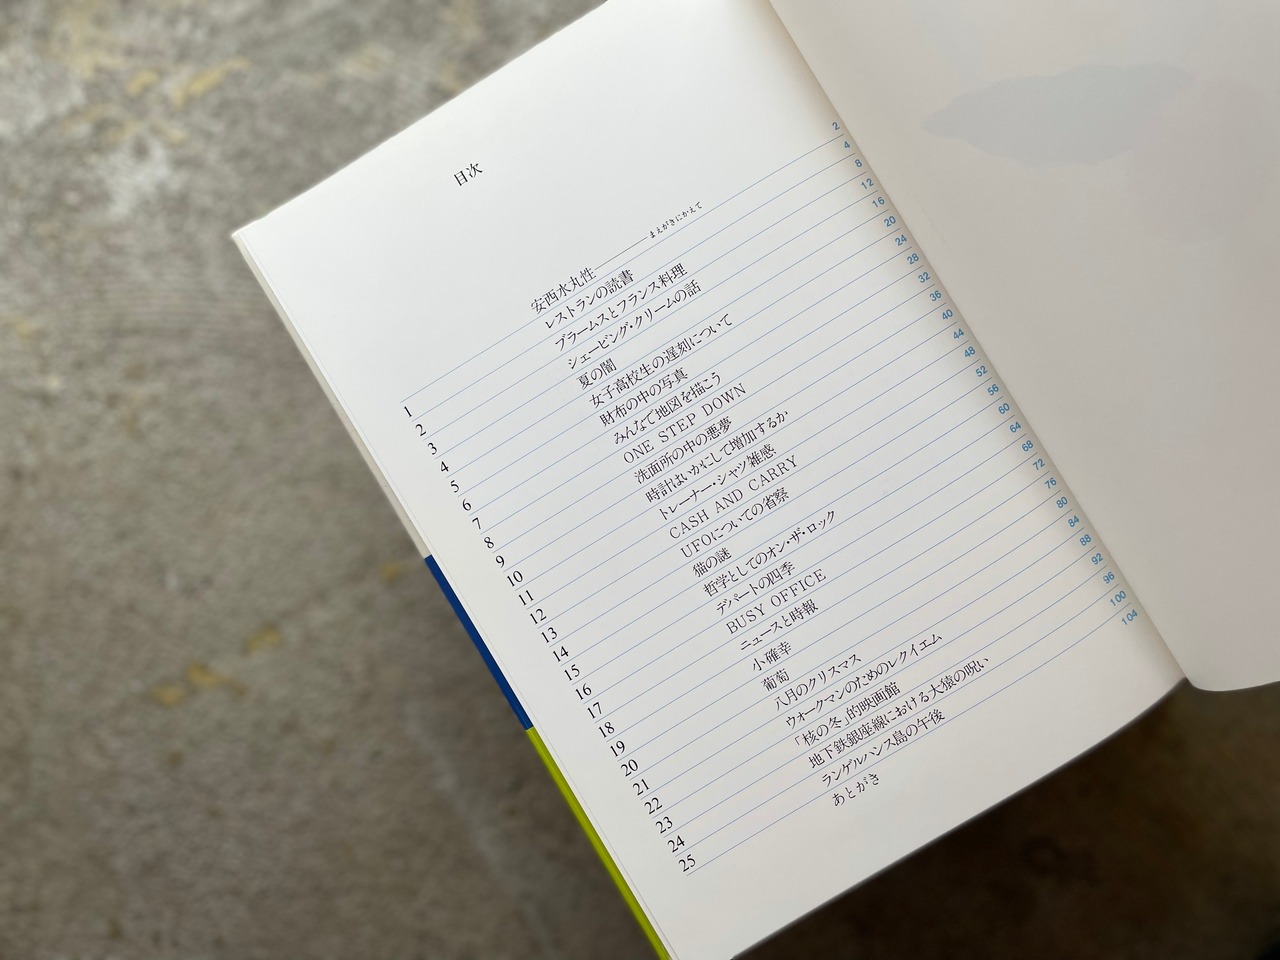 目次
安西水丸性――まえがきにかえて 2
1 レストランの読書 4
2 ブラームスとフランス料理 8
3 シェービング・クリームの話 12
4 夏の闇 16
5 女子高校生の遅刻について 20
6 財布の中の写真 24
7 みんなで地図を描こう 28
8 ONE STEP DOWN 32
9 洗面所の中の悪夢 36
10 時計はいかにして増加するか 40
11 トレーナー・シャツ雑感 44
12 CASH AND CARRY 48
13 UFOについての省察 52
14 猫の謎 56
15 哲学としてのオン・ザ・ロック 60
16 デパートの四季 64
17 BUSY OFFICE 68
18 ニュースと時報 72
19 小確幸 76
20 葡萄 80
21 八月のクリスマス 84
22 ウォークマンのためのレクイエム 88
23 「核の冬」的映画館 92
24 地下鉄銀座線における大猿の呪い 96
25 ランゲルハンス島の午後 100
あとがき 104